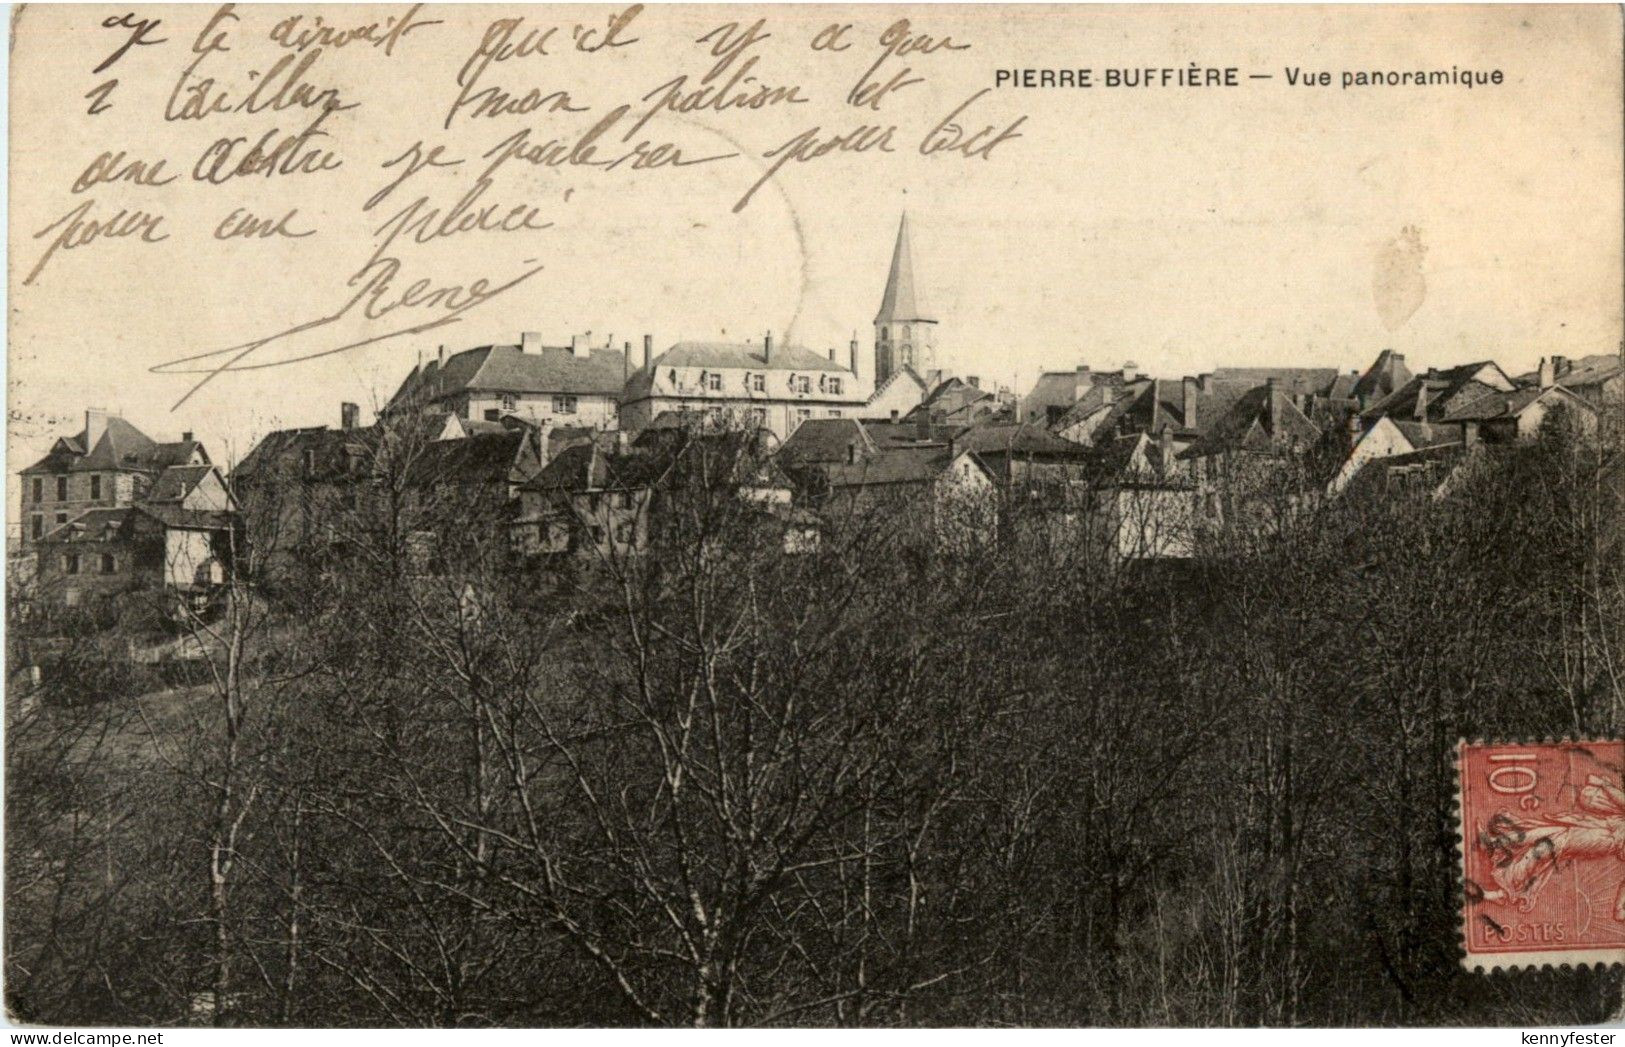 je te dirait qu'il y a que
2 tailleur mon patron et
une autre je parlerer pour toit
pour une place
René
PIERRE-BUFFIÈRE — Vue panoramique
10c
POSTES
kennyfester